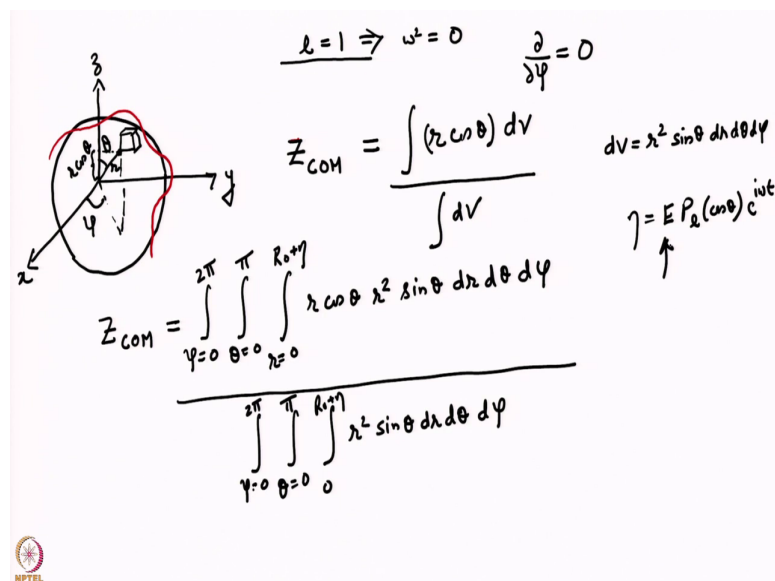 l = 1 ⇒ ω² = 0
∂/∂ψ = 0
z
θ
r cosθ
r
y
ψ
x
Z_COM = ∫(r cosθ) dV / ∫dV
dV = r² sinθ dr dθ dψ
η = E P_l(cosθ) e^{iωt}
Z_COM = ∫_{ψ=0}^{2π} ∫_{θ=0}^{π} ∫_{r=0}^{R₀+η} r cosθ r² sinθ dr dθ dψ
∫_{ψ=0}^{2π} ∫_{θ=0}^{π} ∫_{0}^{R₀+η} r² sinθ dr dθ dψ
NPTEL